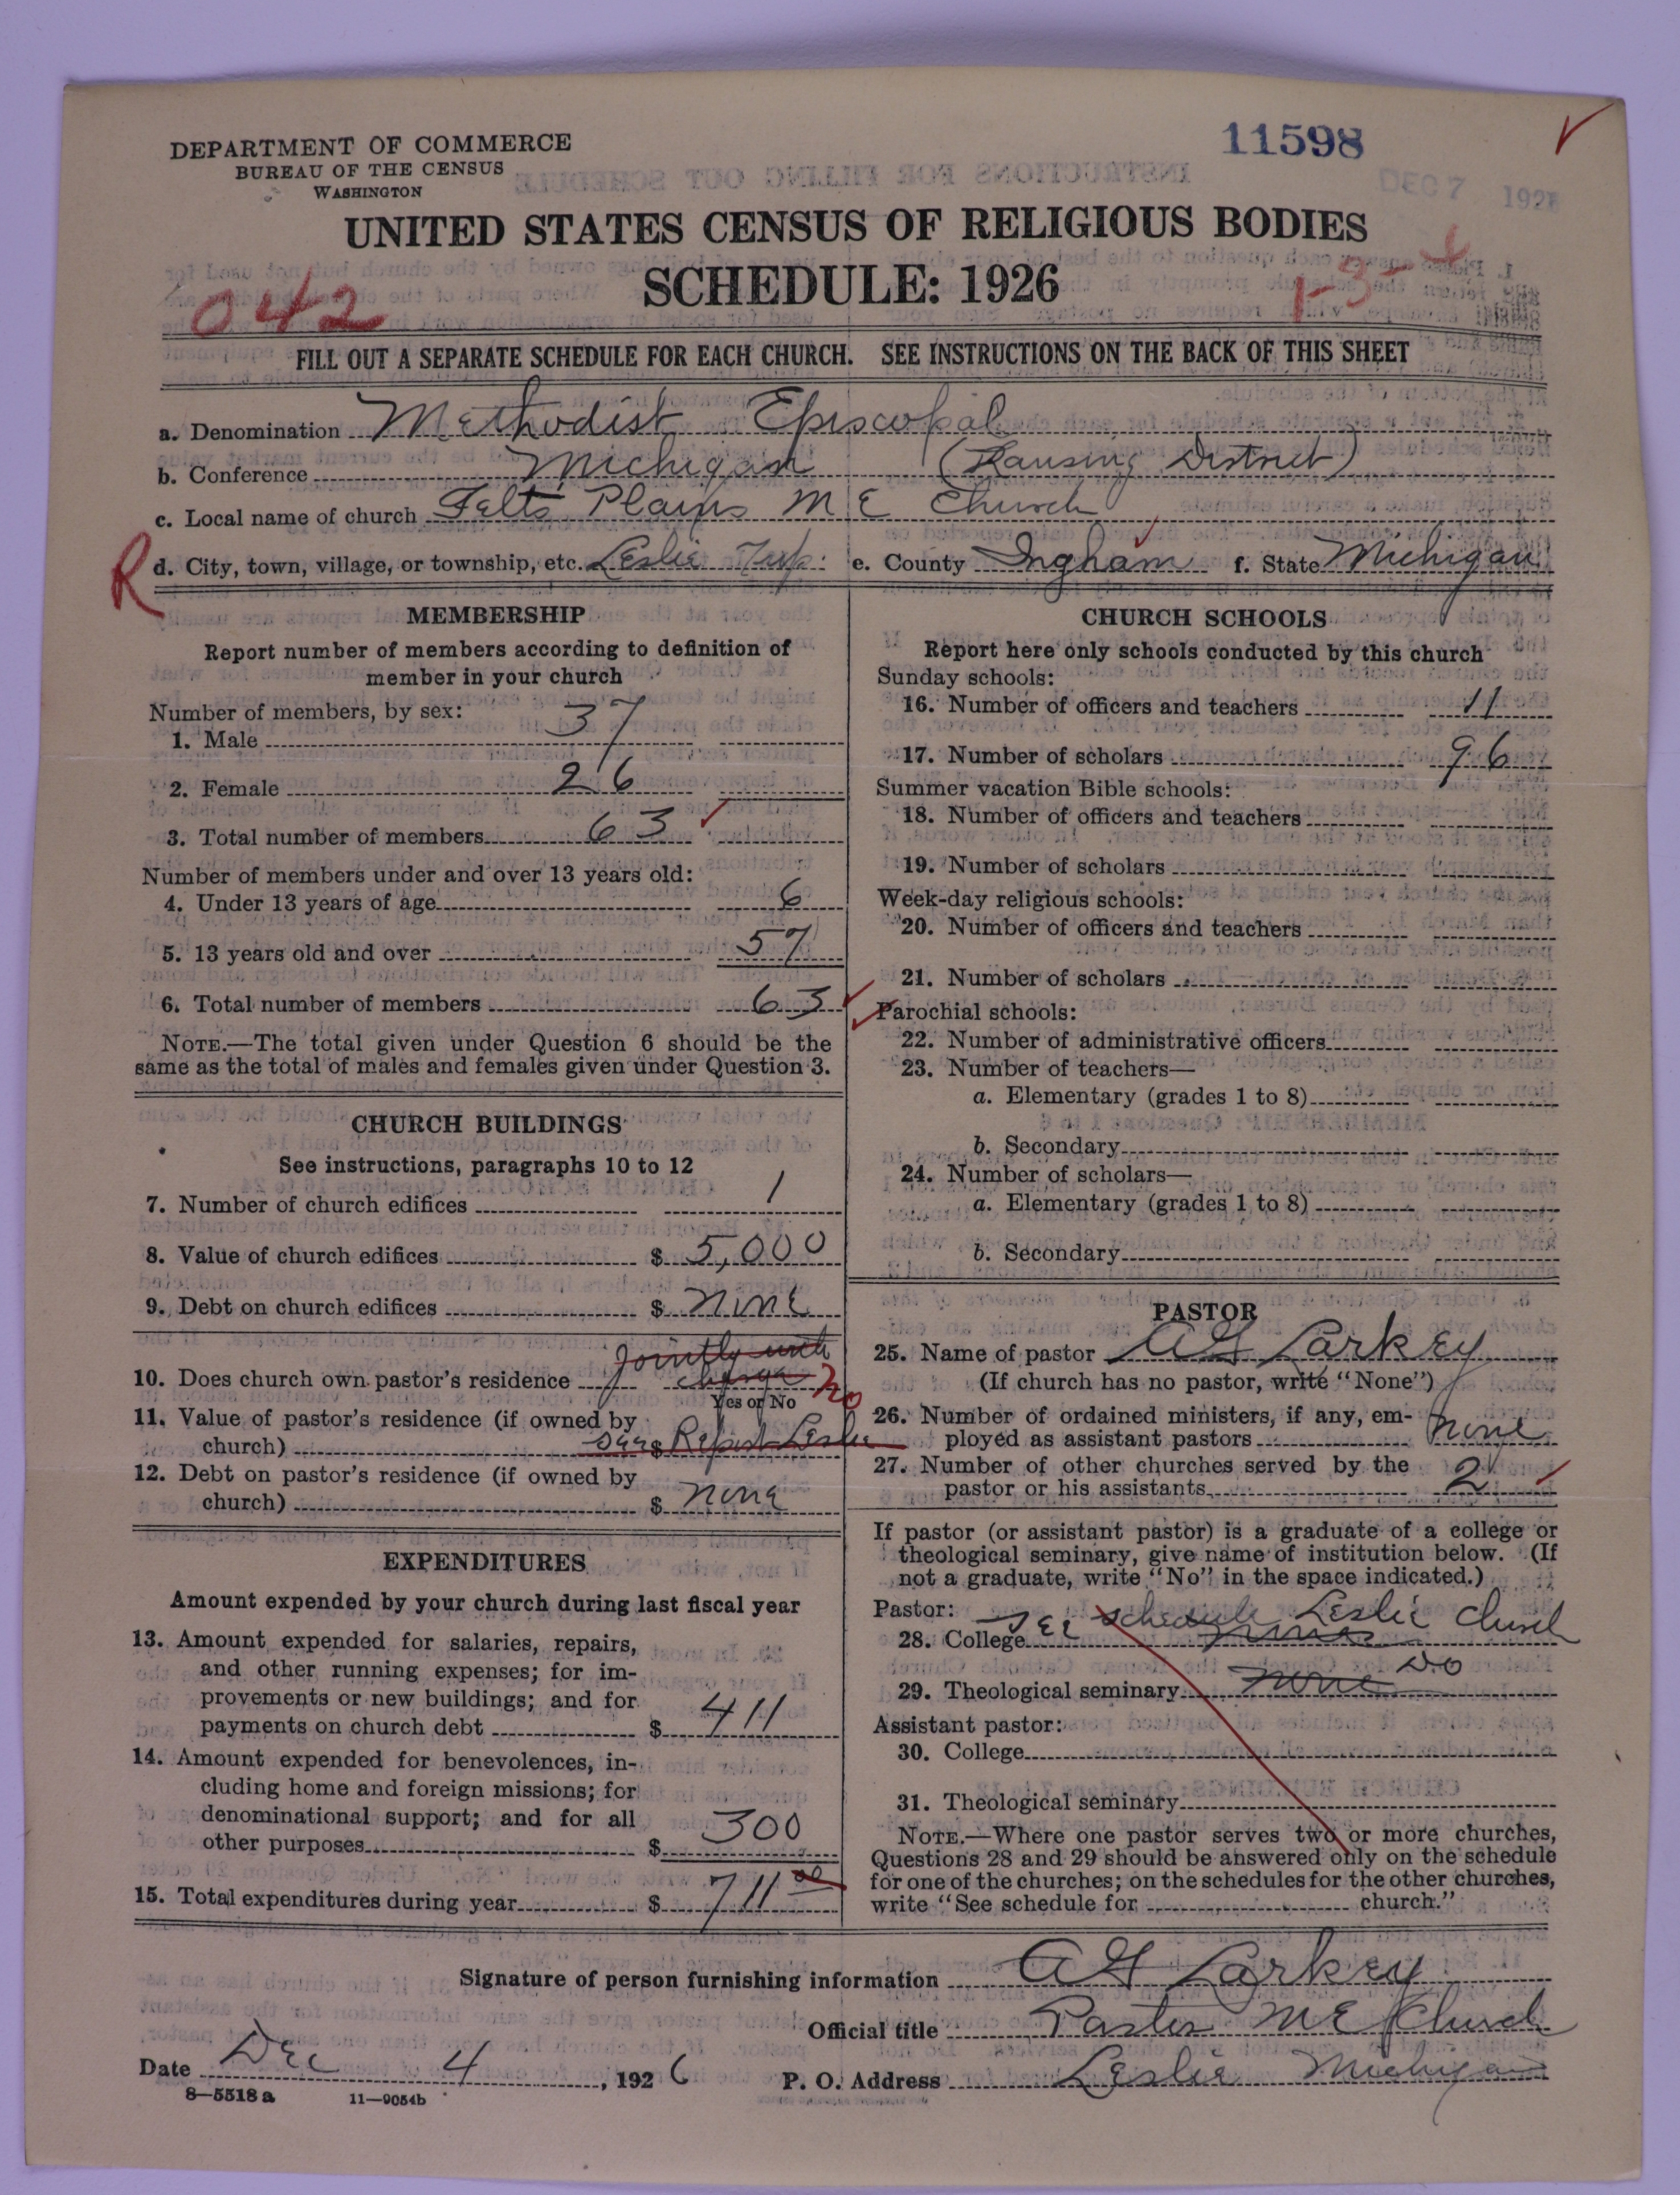 DEPARTMENT OF COMMERCE
BUREAU OF THE CENSUS
WASHINGTON
11598
DEC 7 192
UNITED STATES CENSUS OF RELIGIOUS BODIES
SCHEDULE: 1926
042
1-3-
FILL OUT A SEPARATE SCHEDULE FOR EACH CHURCH. SEE INSTRUCTIONS ON THE BACK OF THIS SHEET
a. Denomination Methodist Episcopal
b. Conference Michigan (Lansing District)
c. Local name of church Felts Plains M E Church
R
d. City, town, village, or township, etc. Leslie Twp. e. County Ingham f. State Michigan
MEMBERSHIP
Report number of members according to definition of
member in your church
Number of members, by sex:
1. Male 37
2. Female 26
3. Total number of members 63
Number of members under and over 13 years old:
4. Under 13 years of age 6
5. 13 years old and over 57
6. Total number of members 63
NOTE.—The total given under Question 6 should be the
same as the total of males and females given under Question 3.
CHURCH BUILDINGS
See instructions, paragraphs 10 to 12
7. Number of church edifices 1
8. Value of church edifices $ 5,000
9. Debt on church edifices $ none
10. Does church own pastor's residence Jointly with charge no
Yes or No
11. Value of pastor's residence (if owned by
church) $ Report Leslie
12. Debt on pastor's residence (if owned by
church) $ none
EXPENDITURES
Amount expended by your church during last fiscal year
13. Amount expended for salaries, repairs,
and other running expenses; for im-
provements or new buildings; and for
payments on church debt $ 411
14. Amount expended for benevolences, in-
cluding home and foreign missions; for
denominational support; and for all
other purposes $ 300
15. Total expenditures during year $ 711 00
CHURCH SCHOOLS
Report here only schools conducted by this church
Sunday schools:
16. Number of officers and teachers 11
17. Number of scholars 96
Summer vacation Bible schools:
18. Number of officers and teachers
19. Number of scholars
Week-day religious schools:
20. Number of officers and teachers
21. Number of scholars
Parochial schools:
22. Number of administrative officers
23. Number of teachers—
a. Elementary (grades 1 to 8)
b. Secondary
24. Number of scholars—
a. Elementary (grades 1 to 8)
b. Secondary
PASTOR
25. Name of pastor A G Larkey
(If church has no pastor, write "None")
26. Number of ordained ministers, if any, em-
ployed as assistant pastors none
27. Number of other churches served by the
pastor or his assistants 2
If pastor (or assistant pastor) is a graduate of a college or
theological seminary, give name of institution below. (If
not a graduate, write "No" in the space indicated.)
Pastor:
28. College See schedule Leslie Church
29. Theological seminary none Do
Assistant pastor:
30. College
31. Theological seminary
NOTE.—Where one pastor serves two or more churches,
Questions 28 and 29 should be answered only on the schedule
for one of the churches; on the schedules for the other churches,
write "See schedule for church."
Signature of person furnishing information A G Larkey
Official title Pastor M E Church
Date Dec 4, 1926 P. O. Address Leslie Michigan
8—5518 a 11—9054b